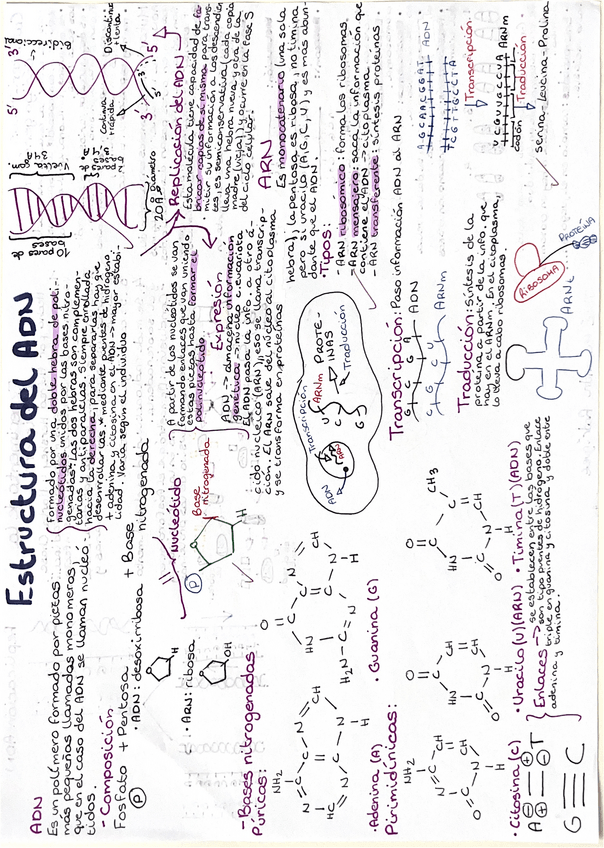 Estructura del ADN
ADN
Es un polímero formado por piezas
más pequeñas llamadas monómeros,
que en el caso del ADN se llaman nucleó-
tidos.
- Composición
Fosfato + Pentosa + Base
nitrogenada
P
· ADN: desoxirribosa
H
· ARN: ribosa
OH
Nucleótido
Base
nitrogenada
P
H
- Bases nitrogenadas
Púricas:
· Adenina (A)
· Guanina (G)
Pirimidínicas:
· Citosina (C)
· Uracilo (U) (ARN)
· Timina (T) (ADN)
Enlaces -> se establecen entre las bases que
son tipo puentes de hidrógeno. Enlace
triple en guanina y citosina y doble entre
adenina y timina.
A = T
G ≡ C
Formado por una doble hebra de poli-
nucleótidos unidos por las bases nitro-
genadas. Las dos hebras son complemen-
tarias y antiparalelas. Siempre enrollada
hacia la derecha, para separarlas hay que
desenrollarlas * mediante puentes de hidrógeno.
+ adenina y citosina en el ADN -> mayor estabi-
lidad. Varía según el individuo
10 pares de
bases
Vuelta com.
34 A
Diámetro
20 A
A partir de los nucleótidos se van
formando enlaces que van uniendo
estas piezas hasta formar el
polinucleótido
Expresión
ADN -> almacena información
genética -> núcleo c. eucariota
El ADN pasa la info. a otro á-
cido nucleico (ARN), eso se llama transcrip-
ción, el ARN sale del núcleo al citoplasma
y se transforma en proteínas
Transcripción
ADN
ARNm
PROTE-
INAS
Traducción
5' 3'
Bidireccional
Discontinua
lenta
continua
rápida
3' 5'
Replicación del ADN
Esta molécula tiene capacidad de fa-
bricar copias de sí misma para trans-
mitir su información a los descendien-
tes, es semiconservativa (cada copia
lleva una hebra nueva y otra de la
madre (vieja)) y ocurre en la fase S
del ciclo celular.
ARN
Es monocatenario (una sola
hebra), la pentosa es ribosa (no timina
pero sí uracilo (A, G, C, U) y es más abun-
dante que el ADN.
· Tipos:
- ARN ribosómico: forma los ribosomas.
- ARN mensajero: saca la información que
contiene el ADN al citoplasma
- ARN transferente: síntesis proteínas
Transcripción: Paso información ADN al ARN
ADN
ARNm
Traducción: síntesis de la
proteína a partir de la info. que
hay en el ARNm. En el citoplasma,
lo lleva a cabo ribosomas.
RIBOSOMA
PROTEÍNA
ARNt
ADN
Transcripción
ARNm
codón
Traducción
serina-Leucina-Prolina